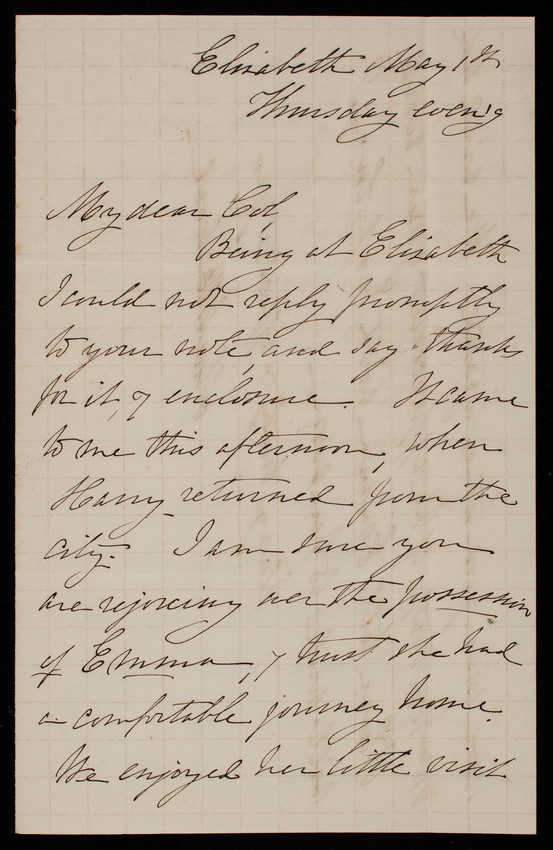 Elizabeth May 1st
Thursday even'g
My dear Col,
Being at Elizabeth
I could not reply promptly
to your note, and say thanks
for it, & enclosure. It came
to me this afternoon, when
Harry returned from the
city. I am sure you
are rejoicing over the possession
of Emma, & trust she had
a comfortable journey home.
We enjoyed her little visit